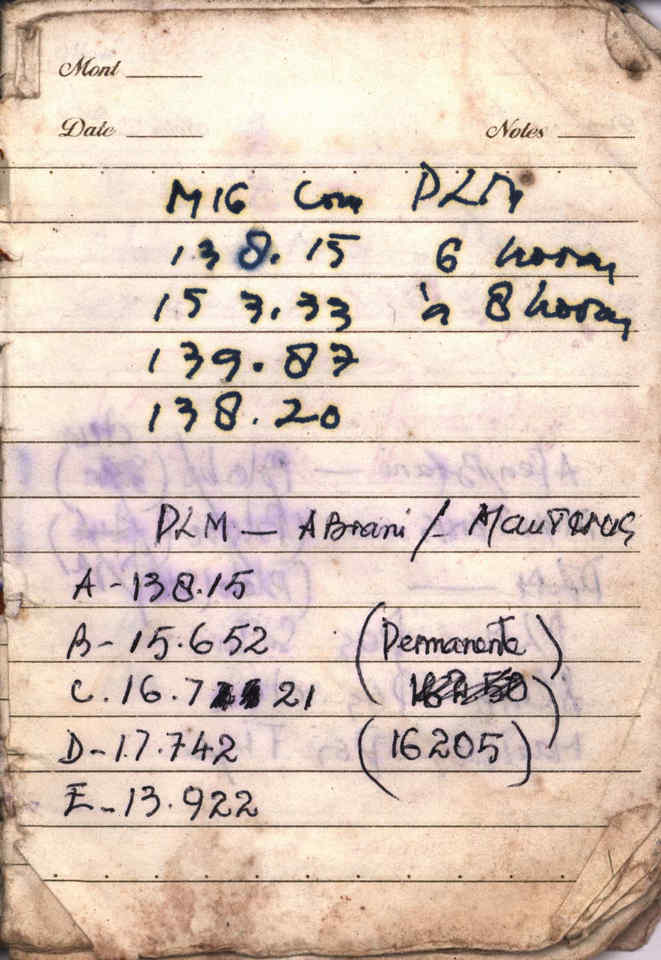 Mont
Date Notes
M16 Com DLM
138.15 6 horas
153.33 às 8 horas
139.87
138.20
DLM — ABrani /
A-138.15
B-15.652 (Permanente)
C.16.7 21
D-17.742 (16205)
E-13.922